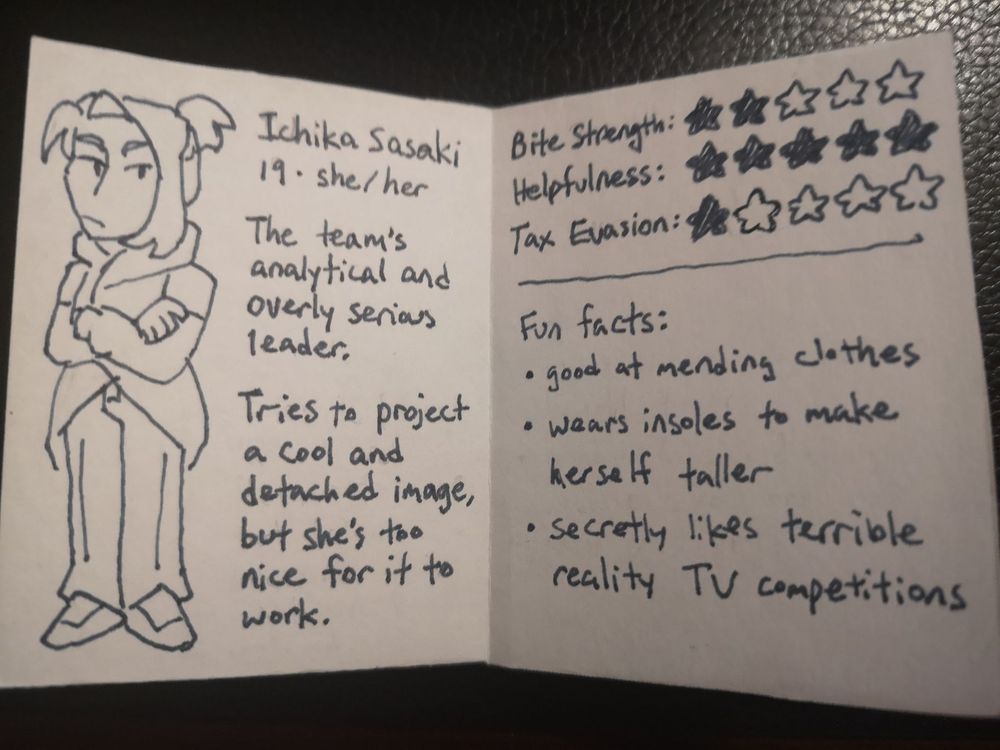 Ichika Sasaki
19 · she/her
The team's
analytical and
overly serious
leader.
Tries to project
a cool and
detached image,
but she's too
nice for it to
work.
Bite Strength:
Helpfulness:
Tax Evasion:
Fun facts:
• good at mending clothes
• wears insoles to make
herself taller
• secretly likes terrible
reality TV competitions